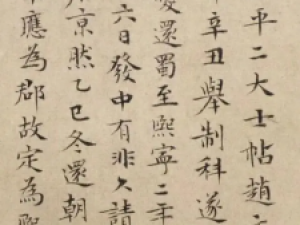 平二大士帖趙
辛丑舉制科遂
還蜀至熙寧二年
六日發中有非久請
京然乙巳冬還朝
應為郡故定為熙